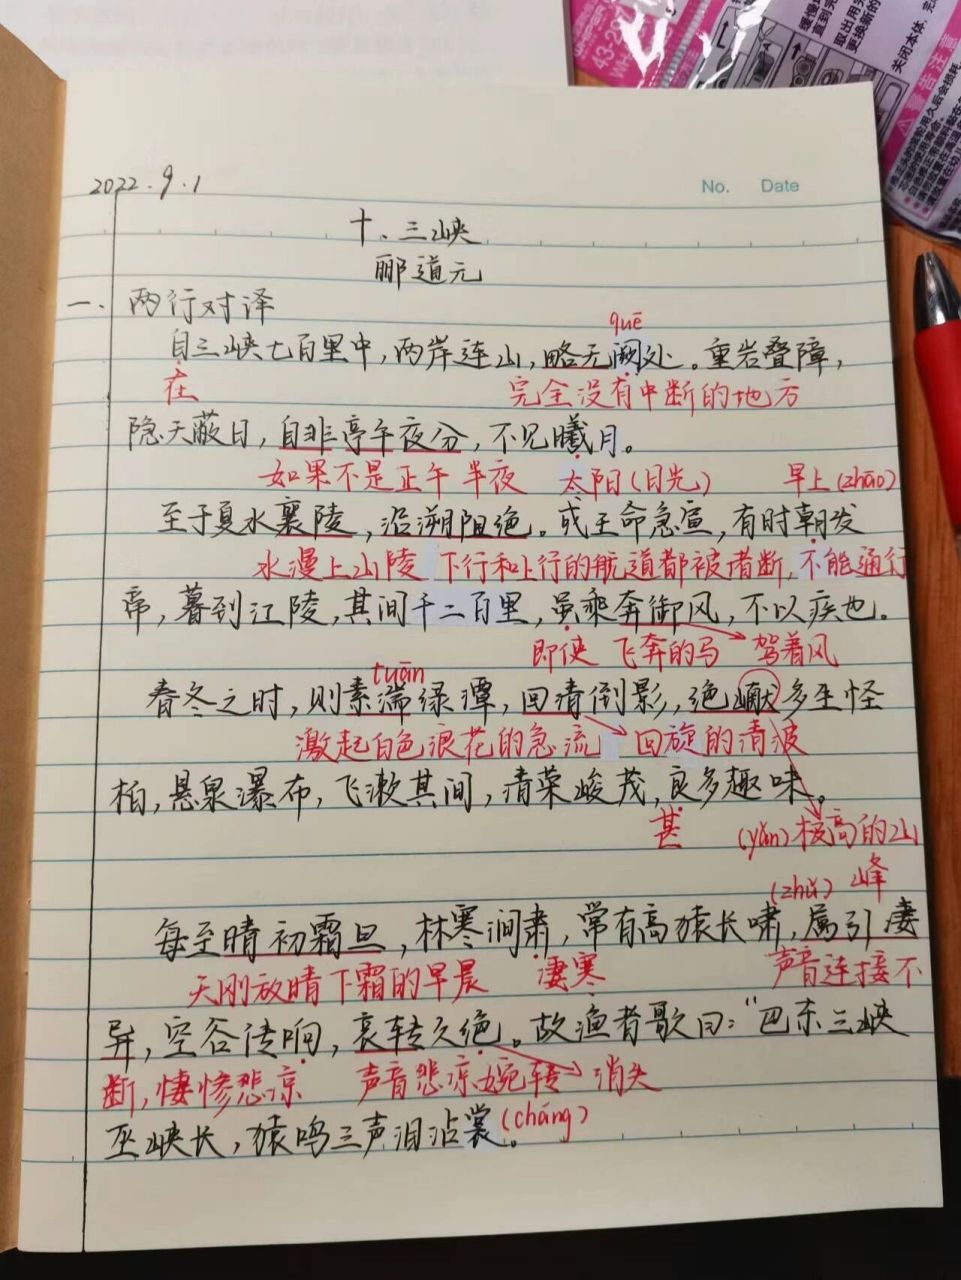 43-20
关闭本体，完
警告注意
2022.9.1
No. Date
十、三峡
郦道元
一、两行对译
quē
自三峡七百里中，两岸连山，略无阙处。重岩叠障，
在 完全没有中断的地方
隐天蔽日，自非亭午夜分，不见曦月。
如果不是正午 半夜 太阳(日光) 早上(zhāo)
至于夏水襄陵，沿溯阻绝。或王命急宣，有时朝发
水漫上山陵 下行和上行的航道都被者断，不能通行
帝，暮到江陵，其间千二百里，虽乘奔御风，不以疾也。
即使 飞奔的马 驾着风
tuān
春冬之时，则素湍绿潭，回清倒影，绝巘多生怪
激起白色浪花的急流 回旋的清波
柏，悬泉瀑布，飞漱其间，清荣峻茂，良多趣味。
甚 (yǎn)极高的山
(zhǔ) 峰
每至晴初霜旦，林寒涧肃，常有高猿长啸，属引凄
天刚放晴下霜的早晨 凄寒 声音连接不
异，空谷传响，哀转久绝。故渔者歌曰："巴东三峡
断，悽惨悲凉 声音悲凉婉转 消失
巫峡长，猿鸣三声泪沾裳。(cháng)